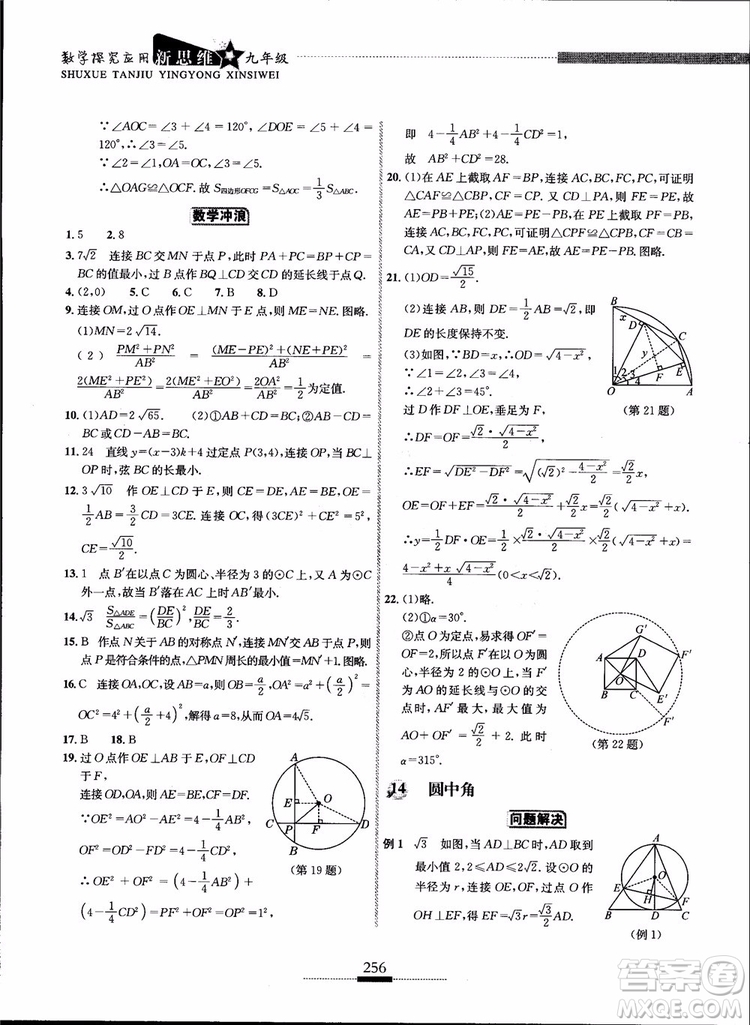 数学探究应用新思维 九年级
SHUXUE TANJIU YINGYONG XINSIWEI
∵∠AOC=∠3+∠4=120°,∠DOE=∠5+∠4=
120°,∴∠3=∠5.
∵∠2=∠4,OA=OC,∠3=∠5.
∴△OAG≌△OCF.故 S四边形OFCG=S△AOC=1/3 S△ABC.
数学冲浪
1. 5 2. 8
3. 7√2 连接 BC 交 MN 于点 P,此时 PA+PC=BP+CP=
BC 的值最小,过 B 点作 BQ⊥CD 交 CD 的延长线于点 Q.
4. (2,0) 5. C 7. B 8. D
9. 连接 OM,过 O 点作 OE⊥MN 于点 E,则 ME=NE.图略.
(1)MN=2√14.
(2) (PM²+PN²)/AB² = ((ME-PE)²+(NE+PE)²)/AB² =
2(ME²+PE²)/AB² = 2(ME²+EO²)/AB² = 2OA²/AB² = 1/2 为定值.
10. (1)AD=2√65. (2)①△ABD≌△CFB;②△ABD
与△BCF 不相似.
11. 24 直线 y=(x-3)k+4 过定点 P(3,4),连接 OP,当 BC⊥
OP 时,弦 BC 的长最小.
12. 3√10 作 OE⊥CD 于点 E,则△OED∽△ABD,OE=
1/2 AD=3/2 CD=3CE.连接 OC,得(3CE)²+CE²=5²,
CE=√10/2.
13. 1 点 B′在以点 C 为圆心、半径为 3 的⊙C 上,因为 A 是⊙C
外一点,故当 B′落在 AC 上时,AB′最小.
14. √3 S△ADE/S△ABC=(DE/BC)²,DE/BC=2/3.
15. B 作点 N 关于 AB 的对称点 N′,连接 MN′交 AB 于 P,则
点 P 是符合条件的点,△PMN 周长的最小值=MN′.图略.
16. C 连接 OA,OC,设 AB=a,则 OB=a/2,OA²=a²+(a/2)²,
OC²=4²+(a/2+4)²,解得 a=8,从而 OA=4√5.
17. B 18. B
19. 过 O 点作 OE⊥AB 于 E,OF⊥CD
于 F,
连接 OD,OA,则 AE=BE,CF=DF.
∵OE²=AO²-AE²=4-1/4 AB²,
OF²=OD²-FD²=4-1/4 CD²,
∴OE²+OF²=(4-1/4 AB²)+
(4-1/4 CD²)=PF²+OF²=OP²=1²,
A E O C P F D B
(第 19 题)
即 4-1/4 AB²+4-1/4 CD²=1,
故 AB²+CD²=28.
20. (1)在 AE 上截取 AF=BP,连接 AC,FC,PC,可证明
△CAF≌△CBP,CF=CP.又 CD⊥PA,则 PE=FE=
AE-AF=AE-BP,故 AE=PE+PB.
(2)AE=PE-PB,在 PE 上截取 PF=PB,可证明
△CPF≌△CPB,CF=CB=CA.又 CD⊥AP,则 FE=
AE,故 AE=PE-PF=PE-PB.图略.
21. (1)OD=√15/2.
(2)连接 AB,则 AB=√OB²+OA²=2√2,DE=1/2 AB=√2,
DE 的长度保持不变.
(3)如图,∵BD=x,∴OD=√4-x²,
∵∠1=∠2,∠3=∠4,
∴∠2+∠3=45°.
过 D 作 DF⊥OE,垂足为 F,
∴DF=OF=√2·√4-x²/2,
∴EF=√DE²-DF²=√(√2)²-(4-x²)/2=√2/2 x,
OE=OF+EF=√2·√4-x²/2+√2/2 x=√2/2(√4-x²+x).
∴y=1/2 DF·OE=1/2×√2·√4-x²/2×√2/2(√4-x²+x)=
(4-x²+x√4-x²)/4 (0<x<√2).
B x D C y E F O A 1 2 3 4
(第 21 题)
22. (1)略.
(2)①α=30°.
②点 O 为定点,易求得 OF′=
OE′=2,则点 F′在以 O 为圆
心,半径为 2 的⊙O 上,当 F′
为 AO 的延长线与⊙O 的交
点时,AF′最大,最大值为
AO+OF′=√2/2+2,此时
α=315°.
G′ A D F′ O B C E′ F′
(第 22 题)
14 圆中角
问题解决
例 1 √3 如图,当 AD⊥BC 时,AD 取到
最小值 2,2≤AD≤2√2.设⊙O 的
半径为 r,连接 OE,OF,作
OH⊥EF,EF=√3r=√3/2 AD.
A O E H F B D C
(例 1)
256
答案圈
MXQE.COM